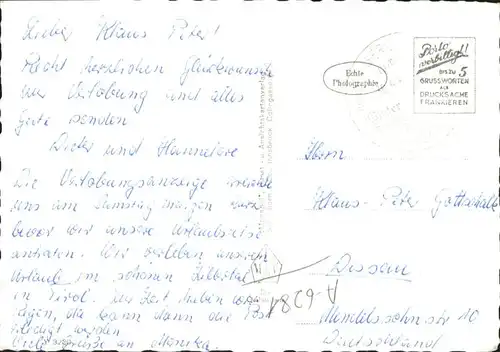 Lieber Klaus Peter!
Recht herzlichen Glückwunsch
zur Verlobung und alles
Gute senden
Dieter und Hannelore
Die Verlobungsanzeige erreichte
uns am Samstag morgen kurz
bevor wir unsere Urlaubsreise
antraten. Wir verleben unseren
Urlaub im schönen Zillertal
in Tirol. Das Brett haben wir
liegen, das kann dann die Post
werden
Viele Grüße an Monika.
Echte
Photographie
Porto
verbilligt!
BIS ZU 5
GRUSSWORTEN
ALS
DRUCKSACHE
FRANKIEREN
Herrn
Klaus-Peter Gottschalk
Dessau
Mendelssohnstr 10
Deutschland
A-6281